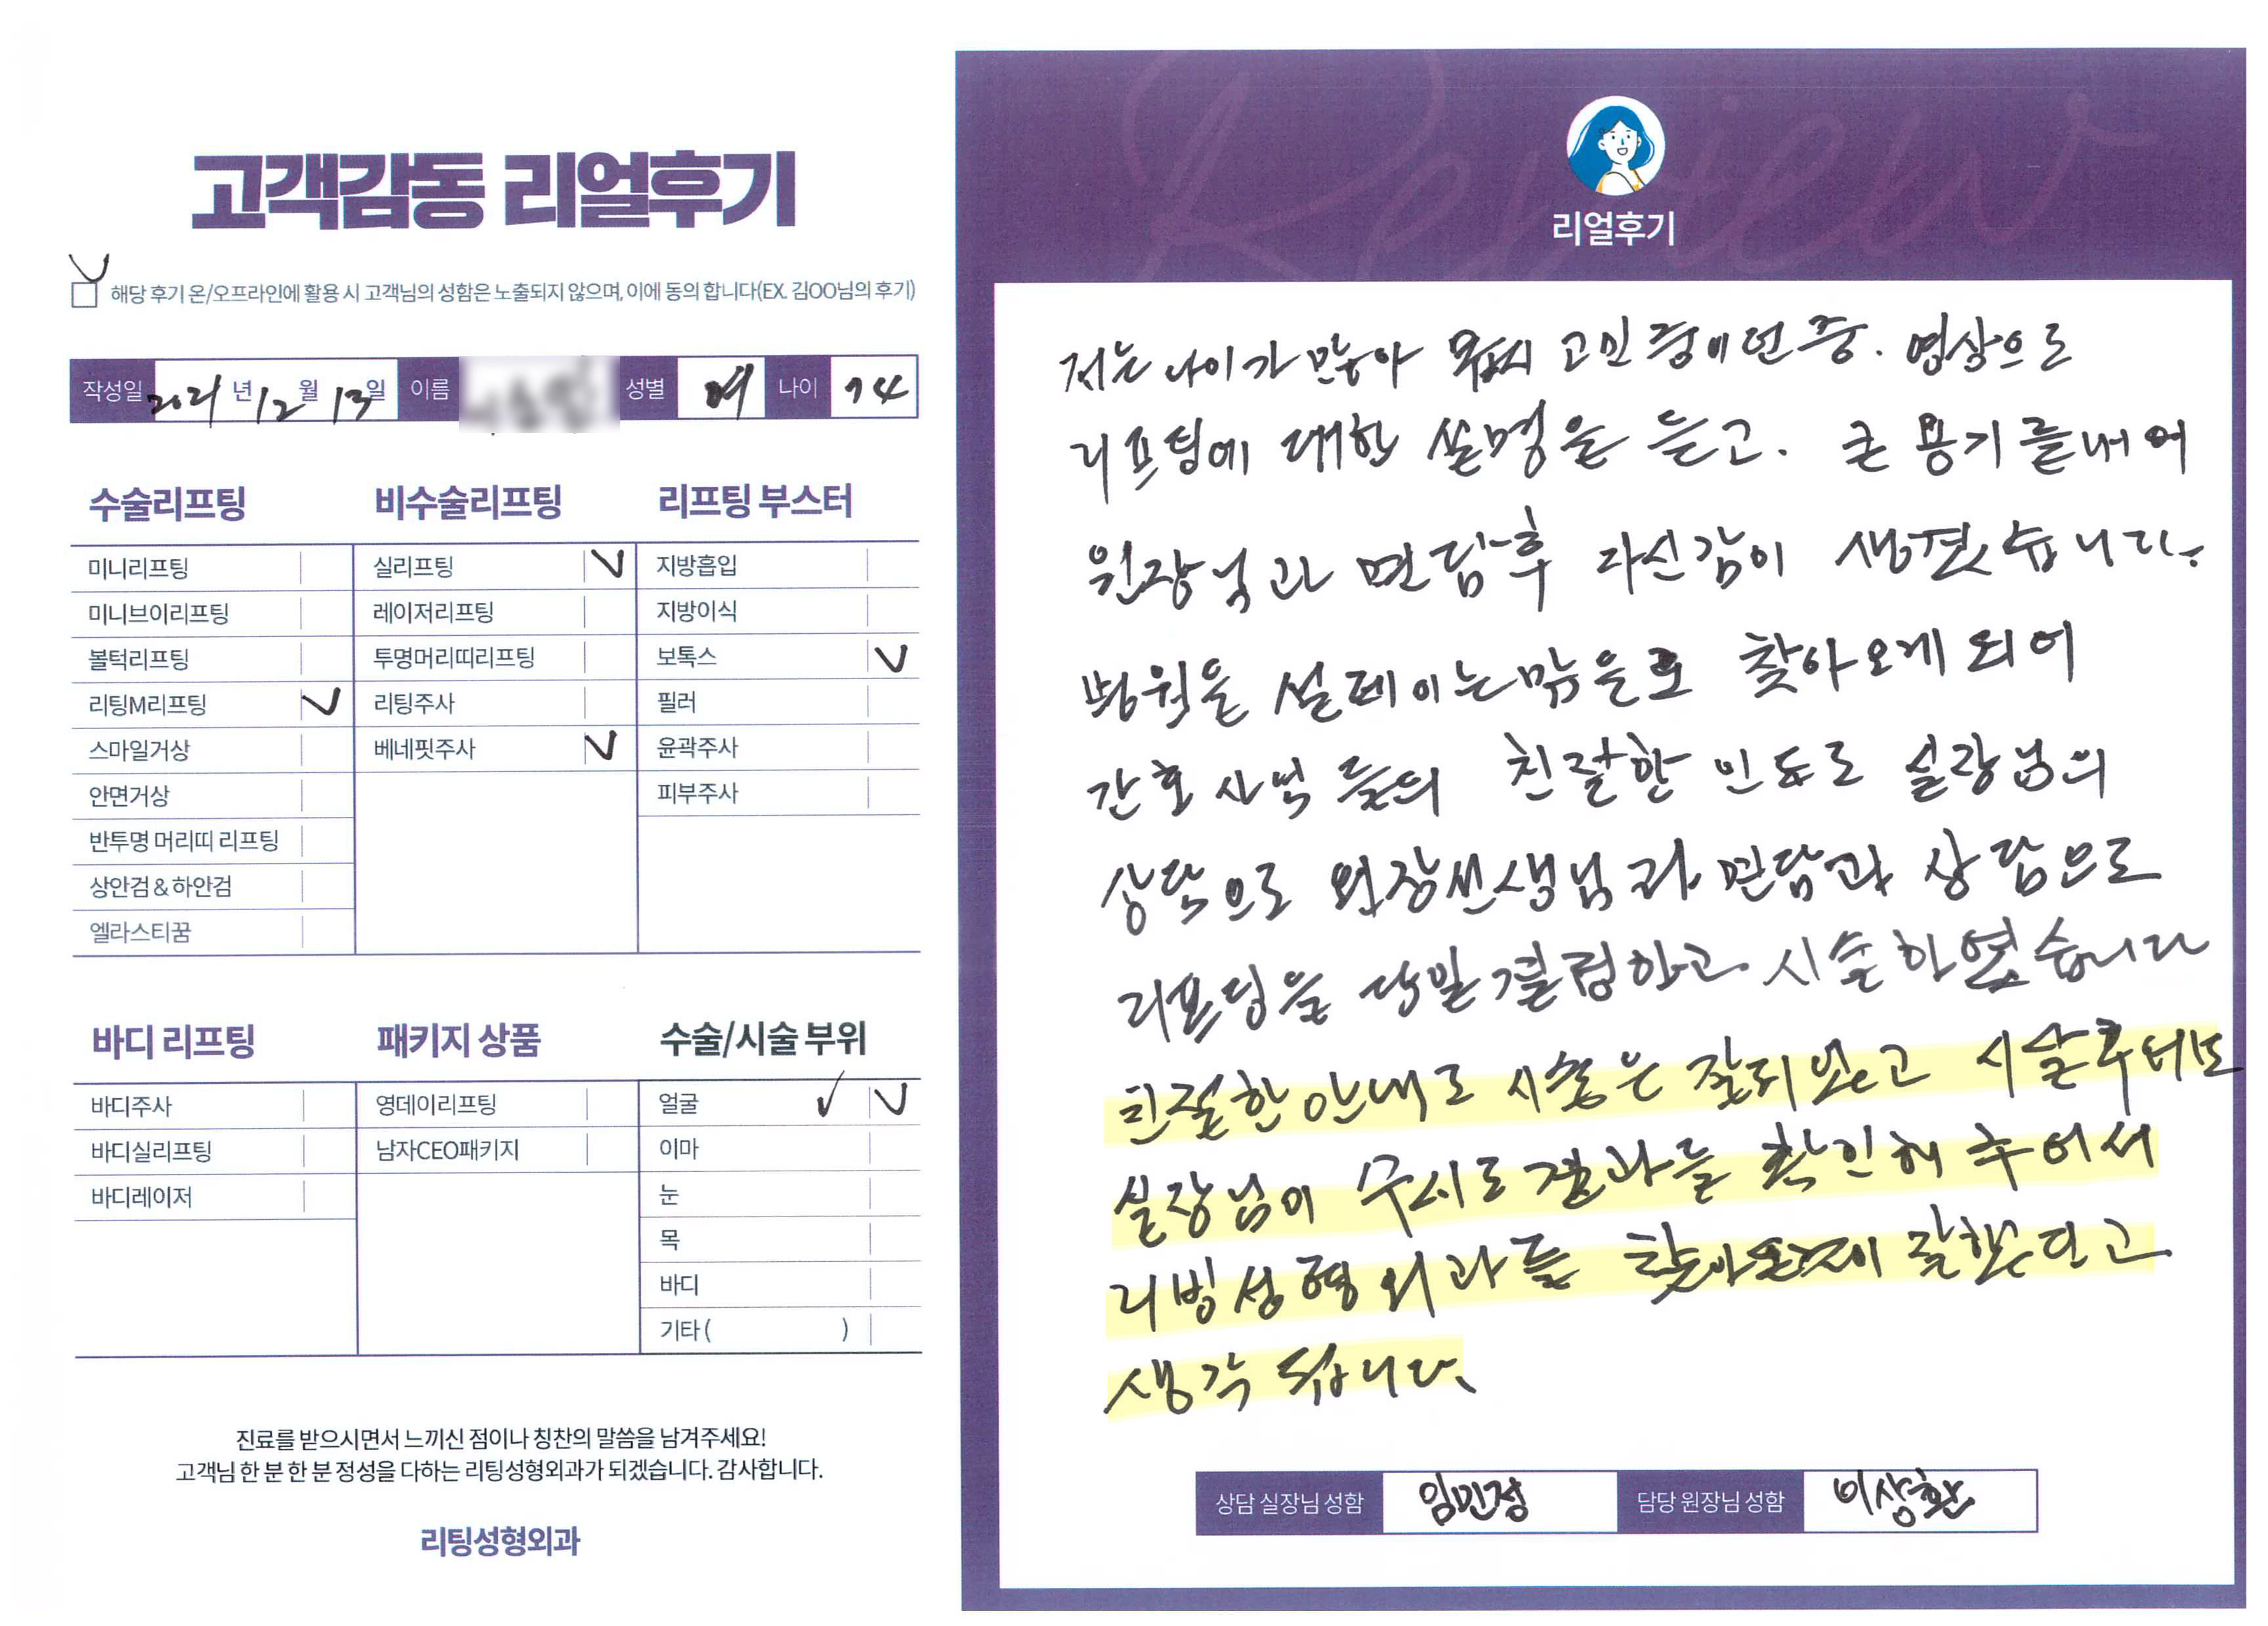 고객감동 리얼후기
해당 후기 온/오프라인에 활용 시 고객님의 성함은 노출되지 않으며, 이에 동의 합니다(EX. 김OO님의 후기)
작성일 2021년 12월 13일 이름 성별 여 나이 74
수술리프팅
미니리프팅
미니브이리프팅
볼턱리프팅
리팅M리프팅
스마일거상
안면거상
반투명 머리띠 리프팅
상안검 & 하안검
엘라스티꿈
비수술리프팅
실리프팅
레이저리프팅
투명머리띠리프팅
리팅주사
베네핏주사
리프팅 부스터
지방흡입
지방이식
보톡스
필러
윤곽주사
피부주사
바디 리프팅
바디주사
바디실리프팅
바디레이저
패키지 상품
영데이리프팅
남자CEO패키지
수술/시술 부위
얼굴
이마
눈
목
바디
기타 ( )
진료를 받으시면서 느끼신 점이나 칭찬의 말씀을 남겨주세요!
고객님 한 분 한 분 정성을 다하는 리팅성형외과가 되겠습니다. 감사합니다.
리팅성형외과
Review
리얼후기
저는 나이가 많아 고민 중이던 중. 영상으로
리프팅에 대한 설명을 듣고. 큰 용기를 내어
원장님과 면담후 자신감이 생겼습니다.
병원을 설레이는 맘으로 찾아오게 되어
간호사님들의 친절한 인도로 실장님의
상담으로 원장선생님과 면담과 상담으로
리프팅을 당일 결정하고 시술하였습니다
친절한 안내로 시술은 잘되었고 시술후에도
실장님이 수시로 결과를 확인해 주어서
리빙성형외과를 찾아온것이 잘했다고
생각 됩니다.
상담 실장님 성함 임민정 담당 원장님 성함 이상환